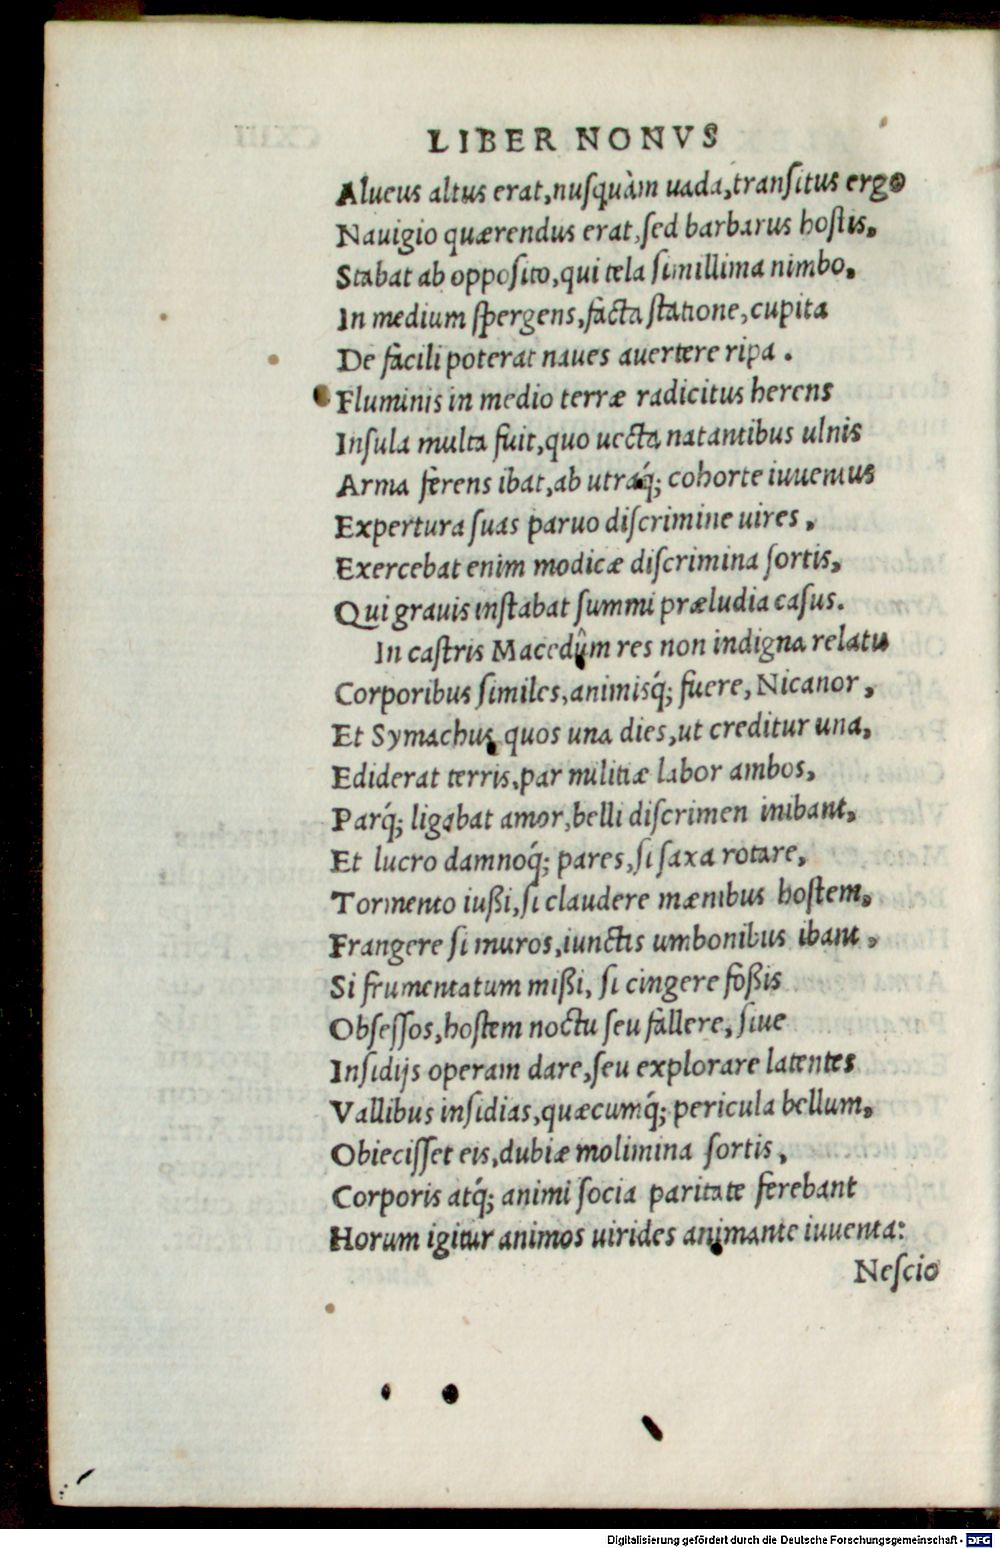 LIBER NONVS
Alueus altus erat, nusquàm uada, transitus ergo
Nauigio quærendus erat, sed barbarus hostis,
Stabat ab opposito, qui tela simillima nimbo,
In medium spergens, facta statione, cupita
De facili poterat naues auertere ripa.
Fluminis in medio terræ radicitus herens
Insula multa fuit, quo uecta natantibus ulnis
Arma ferens ibat, ab utraq́; cohorte iuuentus
Expertura suas paruo discrimine uires,
Exercebat enim modicæ discrimina sortis,
Qui grauis instabat summi præludia casus.
In castris Macedûm res non indigna relatu
Corporibus similes, animisq́; fuere, Nicanor,
Et Symachus, quos una dies, ut creditur una,
Ediderat terris, par militiæ labor ambos,
Parq́; ligabat amor, belli discrimen inibant,
Et lucro damnoq́; pares, si saxa rotare,
Tormento iußi, si claudere mænibus hostem,
Frangere si muros, iunctis umbonibus ibant,
Si frumentatum mißi, si cingere foßis
Obsessos, hostem noctu seu fallere, siue
Insidijs operam dare, seu explorare latentes
Vallibus insidias, quæcumq́; pericula bellum,
Obiecisset eis, dubiæ molimina sortis,
Corporis atq́; animi socia paritate ferebant
Horum igitur animos uirides animante iuuenta:
Nescio
Digitalisierung gefördert durch die Deutsche Forschungsgemeinschaft - DFG